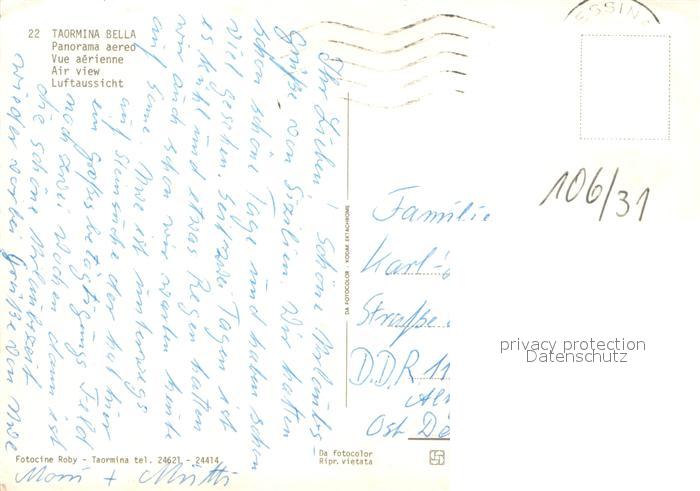 22 TAORMINA BELLA
Panorama aereo
Vue aérienne
Air view
Luftaussicht
ESSIN
106/31
Ihr Lieben! Schöne Urlaubs
Grüße von Sizilien. Wir hatten
schon schöne Tage und haben schon
viel gesehen. Seit zwei Tagen ist
es kühl und etwas Regen hatten
wir auch schon wir warten heute
auf Sonne. Uwe ist unterwegs
auf Steinsuche der hat hier
ein großes betätigungs Feld
noch zwei Wochen dann ist
die schöne Urlaubszeit
wieder vorbei Grüße von Uwe
Moni + Mutti
DA FOTOCOLOR - KODAK EKTACHROME
Familie
Karl-
Straße
D.D.R 11
Ost
privacy protection
Datenschutz
Fotocine Roby - Taormina tel. 24621 - 24414
Da fotocolor
Ripr. vietata